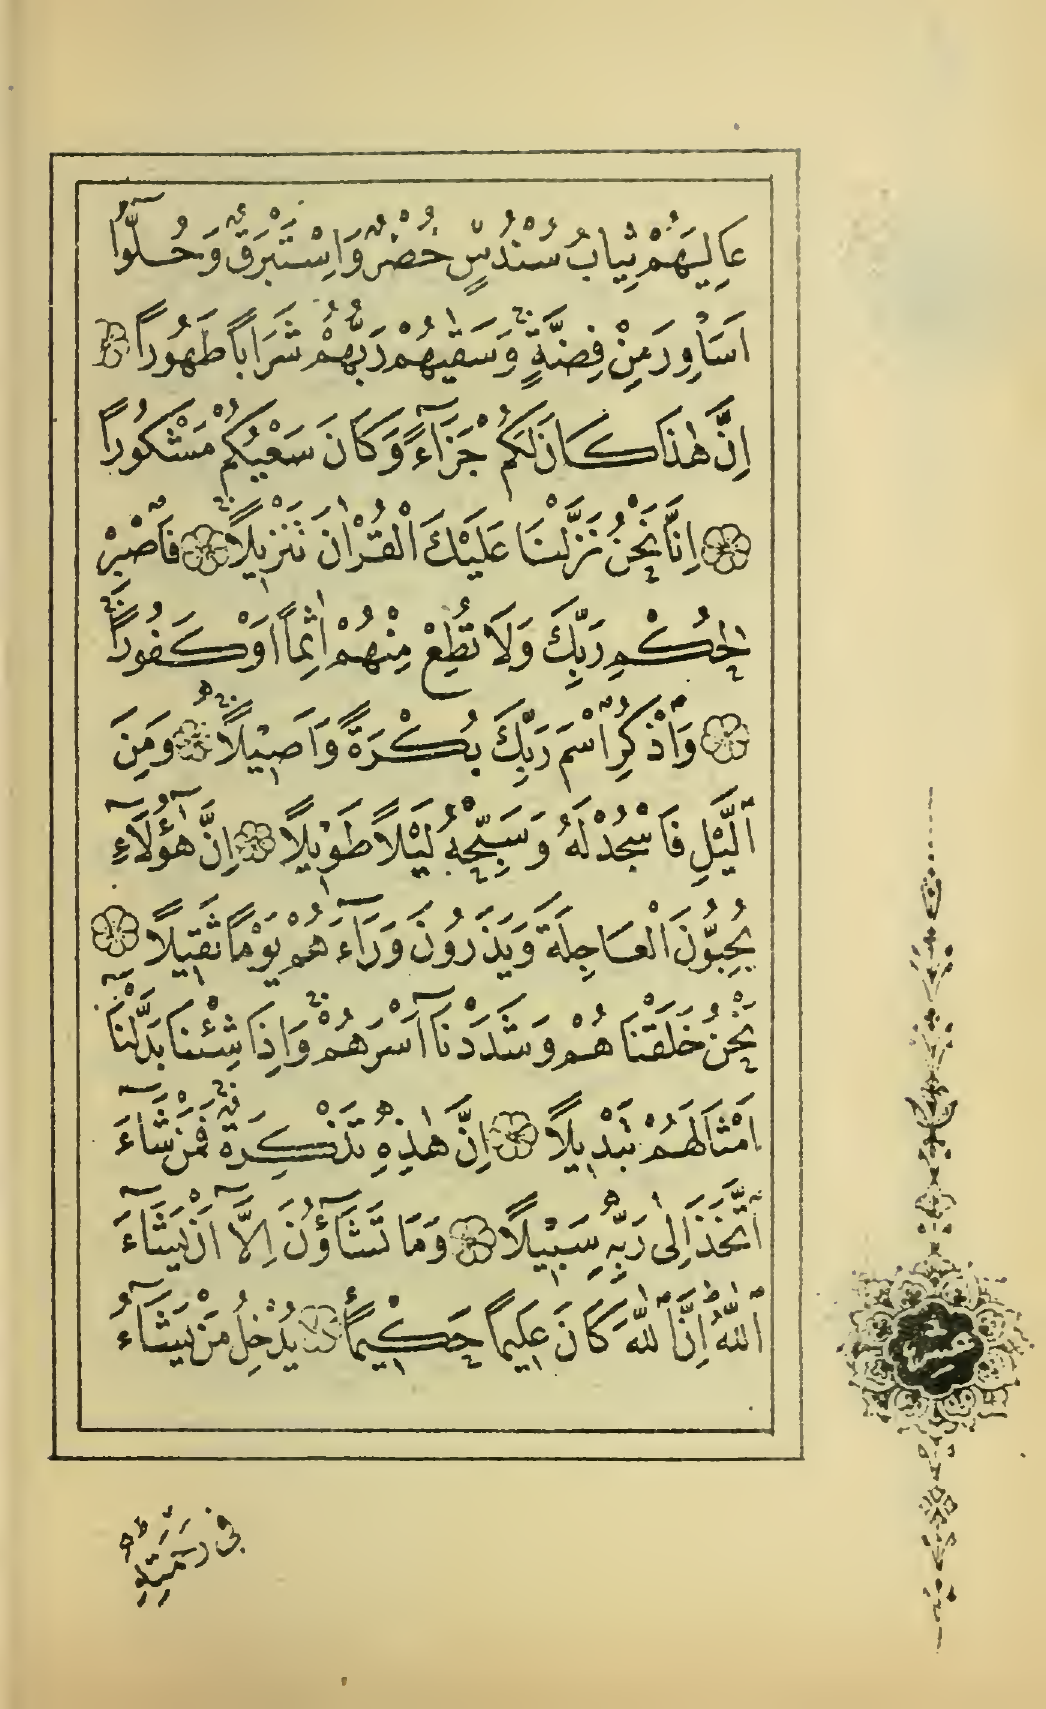 عَالِيَهُمْ ثِيَابُ سُنْدُسٍ خُضْرٌ وَاِسْتَبْرَقٌ وَحُلُّٓوا
اَسَاوِرَ مِنْ فِضَّةٍ وَسَقٰيهُمْ رَبُّهُمْ شَرَاباً طَهُوراً
اِنَّ هٰذَا كَانَ لَكُمْ جَزَٓاءً وَكَانَ سَعْيُكُمْ مَشْكُوراً
اِنَّا نَحْنُ نَزَّلْنَا عَلَيْكَ الْقُرْاٰنَ تَنْزِيلاً فَاصْبِرْ
لِحُكْمِ رَبِّكَ وَلَا تُطِعْ مِنْهُمْ اٰثِماً اَوْ كَفُوراً
وَاذْكُرِ اسْمَ رَبِّكَ بُكْرَةً وَاَصِيلاً وَمِنَ
الَّيْلِ فَاسْجُدْ لَهُ وَسَبِّحْهُ لَيْلاً طَوِيلاً اِنَّ هٰٓؤُلَٓاءِ
يُحِبُّونَ الْعَاجِلَةَ وَيَذَرُونَ وَرَٓاءَهُمْ يَوْماً ثَقِيلاً
نَحْنُ خَلَقْنَاهُمْ وَشَدَدْنَٓا اَسْرَهُمْ وَاِذَا شِئْنَا بَدَّلْنَٓا
اَمْثَالَهُمْ تَبْدِيلاً اِنَّ هٰذِهِ تَذْكِرَةٌ فَمَنْ شَٓاءَ
اتَّخَذَ اِلٰى رَبِّهِ سَبِيلاً وَمَا تَشَٓاؤُنَ اِلَّٓا اَنْ يَشَٓاءَ
اللّٰهُ اِنَّ اللّٰهَ كَانَ عَلِيماً حَكِيماً يُدْخِلُ مَنْ يَشَٓاءُ
فِى رَحْمَتِهِ